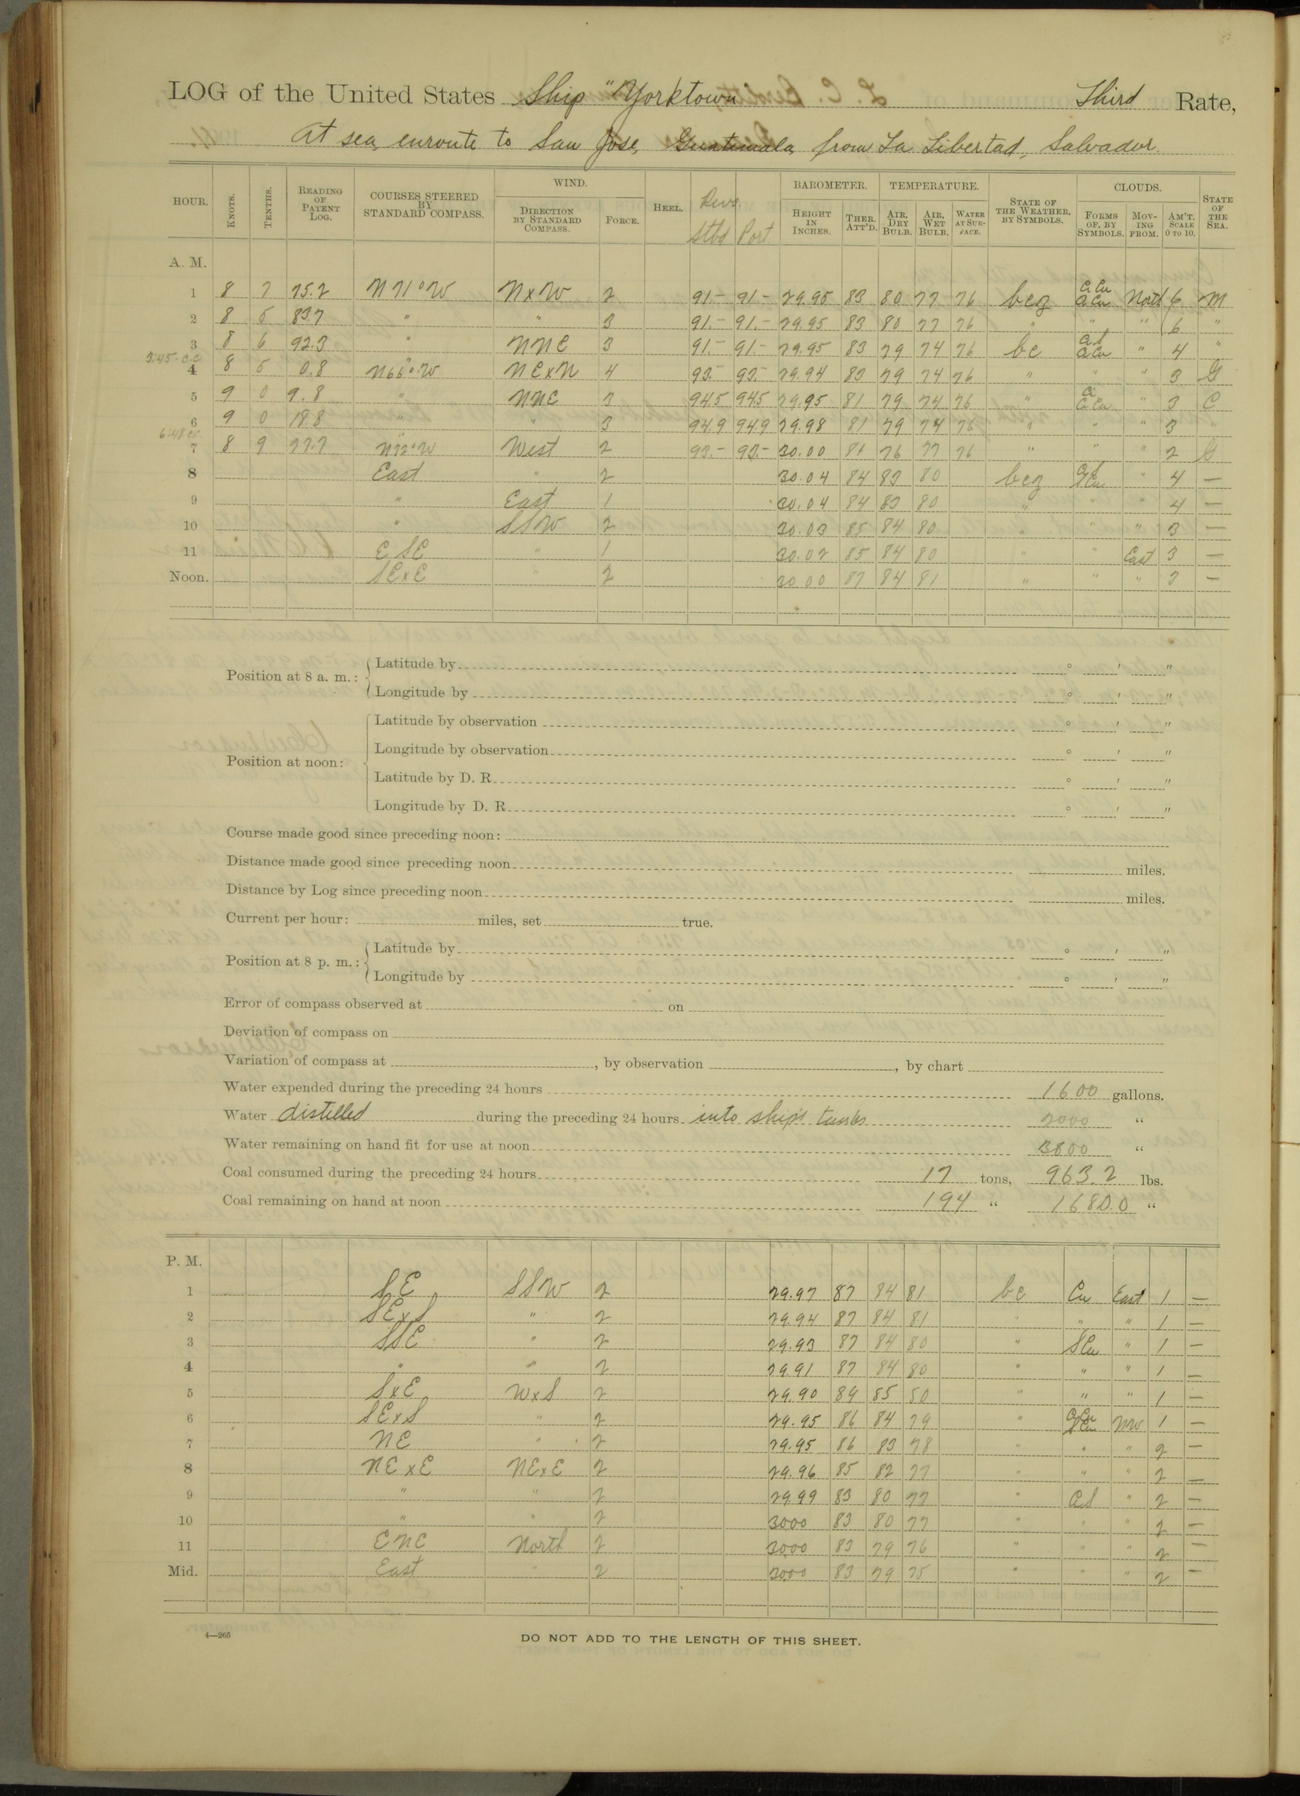 LOG of the United States Ship "Yorktown Third Rate,
At sea, enroute to San Jose, Guatemala, from La Libertad, Salvador.
HOUR. KNOTS. TENTHS. READING OF PATENT LOG. COURSES STEERED BY STANDARD COMPASS. WIND. DIRECTION BY STANDARD COMPASS. FORCE. HEEL. Revs. Stbd Port BAROMETER. HEIGHT IN INCHES. THER. ATT'D. TEMPERATURE. AIR, DRY BULB. AIR, WET BULB. WATER AT SUR-FACE. STATE OF THE WEATHER, BY SYMBOLS. CLOUDS. FORMS OF, BY SYMBOLS. MOV-ING FROM. AM'T. SCALE 0 TO 10. STATE OF THE SEA.
A. M.
1 8 7 75.2 N 71° W NxW 2 91.- 91.- 29.95 83 80 77 76 bcz Ci.Cu A.Cu North 6 M
2 8 5 83.7 " " 3 91.- 91.- 29.95 83 80 77 76 " " " 6 "
3 8 6 92.3 " NNE 3 91.- 91.- 29.95 83 79 74 76 bc " 4 "
3:45 c.c.
4 8 5 0.8 N66°W NExN 4 93.- 93.- 29.94 83 79 74 76 " " " 3 G
5 9 0 9.8 " NNE 3 94.5 94.5 29.95 81 79 74 76 " " 3 C
6 9 0 18.8 " " 3 94.9 94.9 29.98 81 79 74 76 " " " 3
6:48 c.c.
7 8 9 27.7 N72°W West 2 93.- 93.- 30.00 81 76 77 76 " " " 2 G
8 East " 2 30.04 84 83 80 bcz " 4 —
9 " East 1 30.04 84 83 80 " " " 4 —
10 " SSW 2 30.03 85 84 80 " " " 3 —
11 ESE " 1 30.02 85 84 80 " " East 3 —
Noon. SExE " 2 30.00 87 84 81 " " " 3 —
Position at 8 a. m.: Latitude by ° ' "
Longitude by ° ' "
Position at noon: Latitude by observation ° ' "
Longitude by observation ° ' "
Latitude by D. R. ° ' "
Longitude by D. R. ° ' "
Course made good since preceding noon:
Distance made good since preceding noon miles.
Distance by Log since preceding noon miles.
Current per hour: miles, set true.
Position at 8 p. m.: Latitude by ° ' "
Longitude by ° ' "
Error of compass observed at on
Deviation of compass on
Variation of compass at , by observation , by chart
Water expended during the preceding 24 hours 1600 gallons.
Water distilled during the preceding 24 hours into ship's tanks 2000 "
Water remaining on hand fit for use at noon 3800 "
Coal consumed during the preceding 24 hours 17 tons, 963.2 lbs.
Coal remaining on hand at noon 194 " 1680.0 "
P. M.
1 SE SSW 2 29.97 87 84 81 bc Cu East 1 —
2 SExS " 2 29.94 87 84 81 " " " 1 —
3 SSE " 2 29.93 87 84 80 " SCu " 1 —
4 " " 2 29.91 87 84 80 " " " 1 —
5 SxE WxS 2 29.90 89 85 80 " " " 1 —
6 SExS " 2 29.95 86 84 79 " SCu NW 1 —
7 NE " 2 29.95 86 83 78 " " " 2 —
8 NExE NExE 2 29.96 85 82 77 " " " 2 —
9 " " 2 29.99 83 80 77 " " 2 —
10 " " 2 30.00 83 80 77 " " " 2 —
11 ENE North 2 30.00 83 79 76 " " " 2 —
Mid. East " 2 30.00 83 79 75 " " " 2 —
4—265
DO NOT ADD TO THE LENGTH OF THIS SHEET.